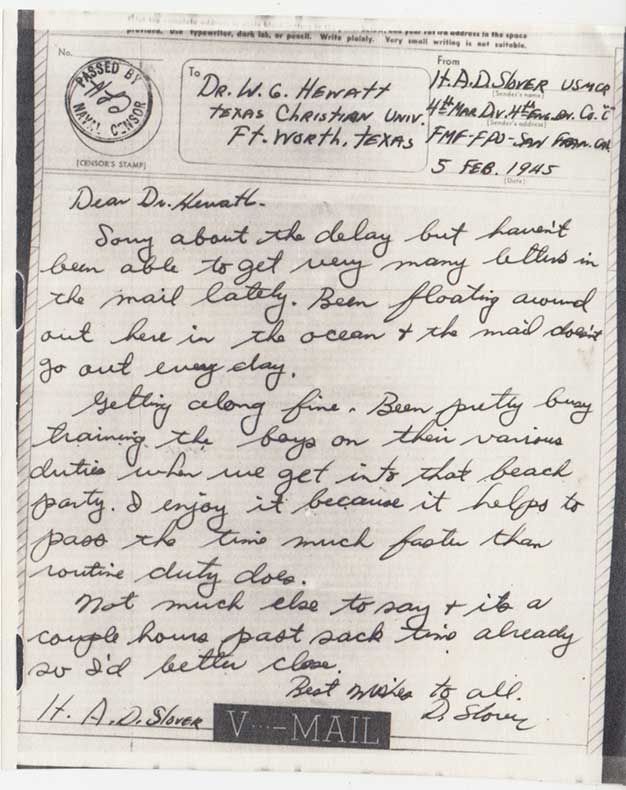 provided. Use typewriter, dark ink, or pencil. Write plainly. Very small writing is not suitable.
No.
PASSED BY
NAVAL CENSOR
[CENSOR'S STAMP]
To
DR. W. G. HEWATT
TEXAS CHRISTIAN UNIV.
FT. WORTH, TEXAS
From
H. A. D. SLOVER USMCR
(Sender's name)
4th MAR. DIV. 4th ENG. BN. CO. "C"
(Sender's address)
FMF-FPO-SAN FRAN. CAL
5 FEB. 1945
(Date)
Dear Dr. Hewatt-
Sorry about the delay but haven't
been able to get very many letters in
the mail lately. Been floating around
out here in the ocean + the mail doesn't
go out every day.
Getting along fine. Been pretty busy
training the boys on their various
duties when we get into that beach
party. I enjoy it because it helps to
pass the time much faster than
routine duty does.
Not much else to say + its a
couple hours past sack time already
so I'd better close.
Best wishes to all.
D. Slover
H. A. D. SLOVER
V...-MAIL